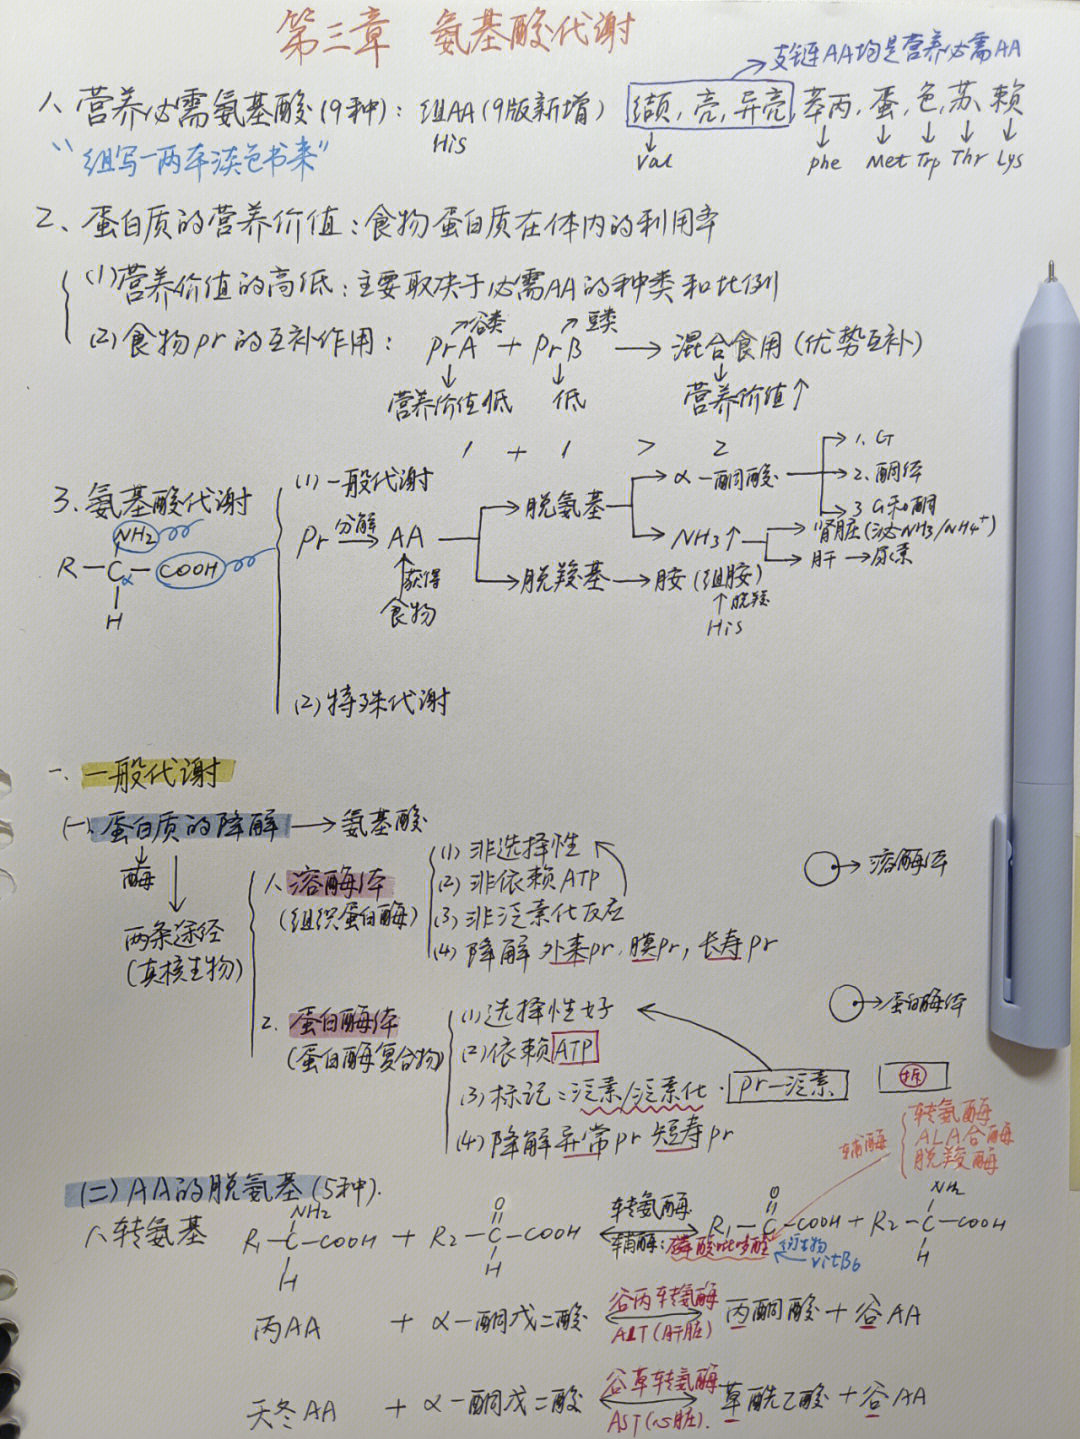 第三章 氨基酸代谢
支链AA均是营养必需AA
1、营养必需氨基酸(9种): 组AA(9版新增) 缬,亮,异亮,苯丙,蛋,色,苏,赖
His Val Phe Met Trp Thr Lys
“组写一两本淡色书来”
2、蛋白质的营养价值:食物蛋白质在体内的利用率
(1)营养价值的高低:主要取决于必需AA的种类和比例
谷类 豆类
(2)食物pr的互补作用: PrA + PrB → 混合食用(优势互补)
营养价值低 低 营养价值↑
1 + 1 > 2
3、氨基酸代谢
NH2
R—C—COOH
α
H
(1)一般代谢
Pr 分解→ AA
获得
食物
脱氨基
α-酮酸
1、G
2、酮体
3 G和酮
NH3↑
肾脏(泌NH3/NH4+)
肝→尿素
脱羧基→胺(组胺)
↑脱羧
His
(2)特殊代谢
一、一般代谢
(一)、蛋白质的降解→氨基酸
酶
两条途径
(真核生物)
1、溶酶体
(组织蛋白酶)
(1)非选择性
(2)非依赖ATP
(3)非泛素化反应
(4)降解外来pr、膜pr,长寿pr
→溶酶体
2、蛋白酶体
(蛋白酶复合物)
(1)选择性好
(2)依赖ATP
(3)标记:泛素/泛素化. Pr—泛素 拆
(4)降解异常pr 短寿pr
→蛋白酶体
辅酶
转氨酶
ALA合酶
脱羧酶
(二)AA的脱氨基(5种).
1、转氨基
NH2 O 转氨酶 O NH2
R1—C—COOH + R2—C—COOH R1—C—COOH + R2—C—COOH
H H 辅酶:磷酸吡哆醛 衍生物 H
vitB6
丙AA + α-酮戊二酸 谷丙转氨酶 丙酮酸 + 谷AA
ALT(肝脏)
天冬AA + α-酮戊二酸 谷草转氨酶 草酰乙酸 + 谷AA
AST(心脏).